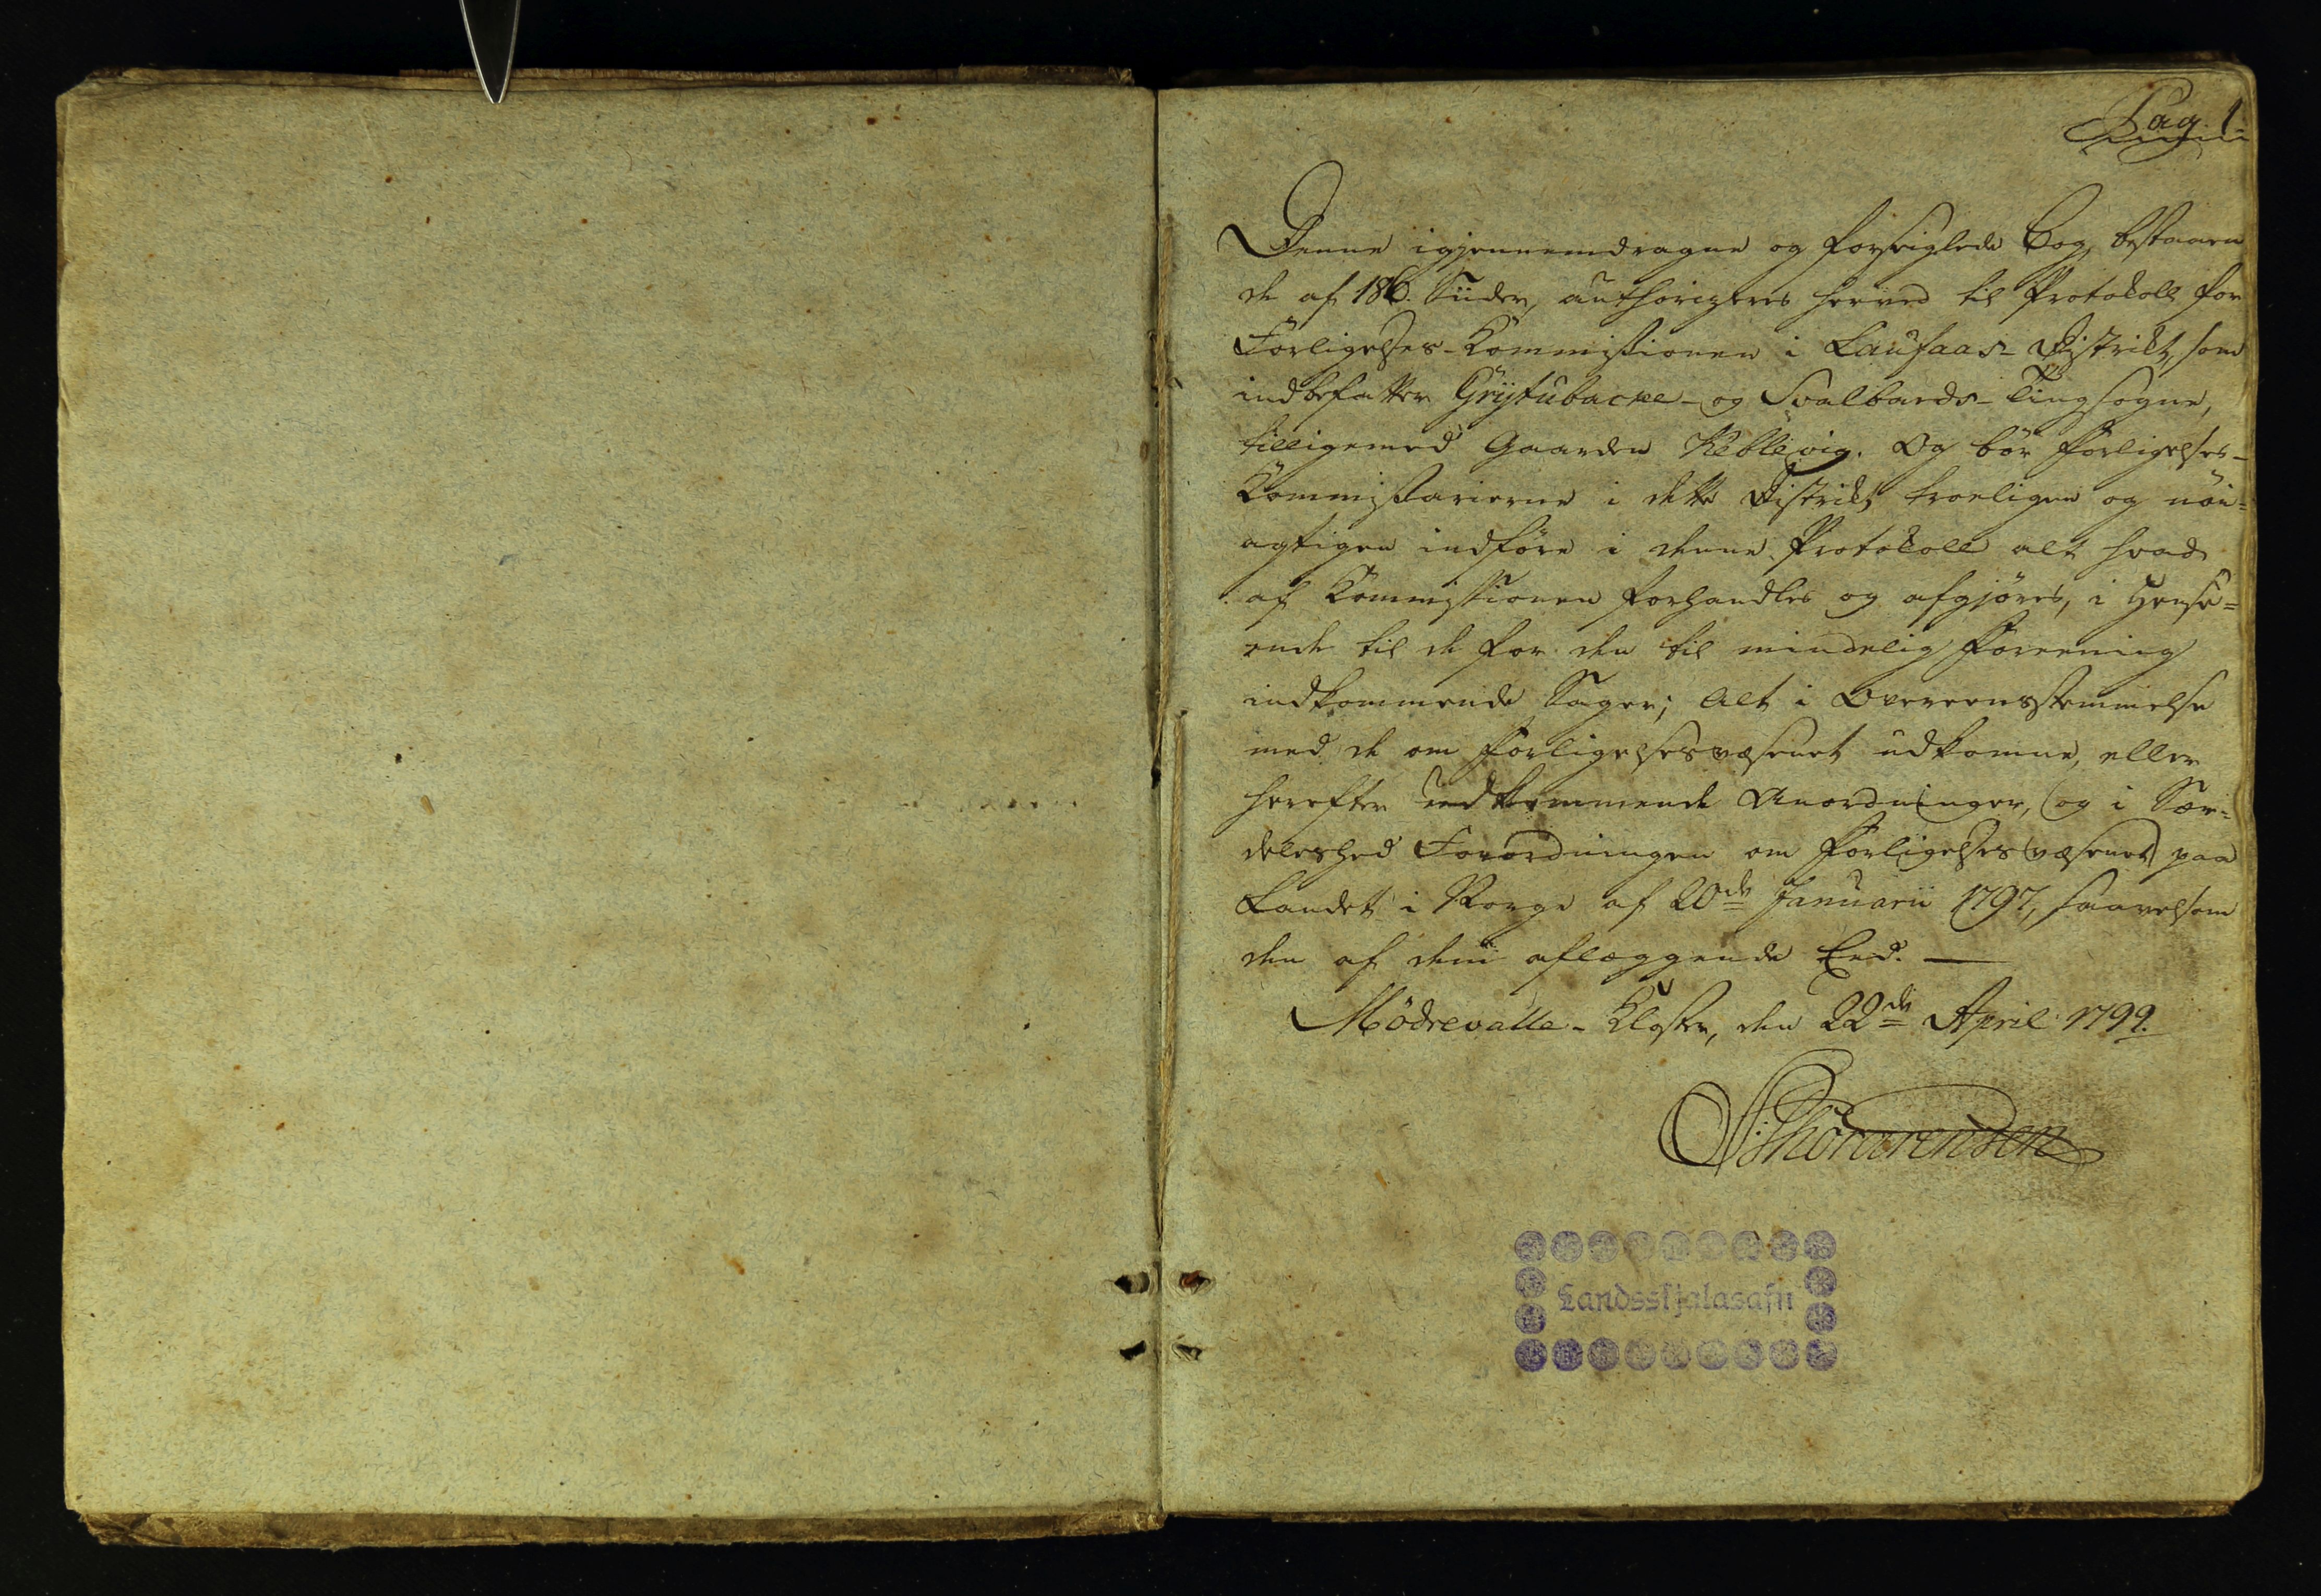 Pag. 1.
Denne igjennemdragne og forseiglede Bog, bestaaen
de af 186. Siider, authorizeres herved til Protokoll for
Forligelses-Kommissionen i Laufaas-Distrikt, som
indbefatter Grÿtubacke- og Svalbards-Tingsogne,
tilligemed Gaarden Keblevig. Og bör Forligelses-
Kommissarierne i dette Distrikt troeligen og nöi=
agtigen indföre i denne Protokoll alt hvad
af Kommissionen forhandles og afgjöres, i Hense=
ende til de for den til mindelig Foreening
indkommende Sager; Alt i Overeensstemmelse
med de om Forligelsesvæsenet udkomne, eller
herefter udkommende Anordninger, og i Sær=
deleshed Forordningen om Forligelsesvæsenet paa
Landet i Norge af 20de Januarii 1797, saavelsom
den af dem aflæggende Eed. —
Mödrevalle-Kloster, den 22de April 1799.
S: Thorarensen
Landsskjalasafn